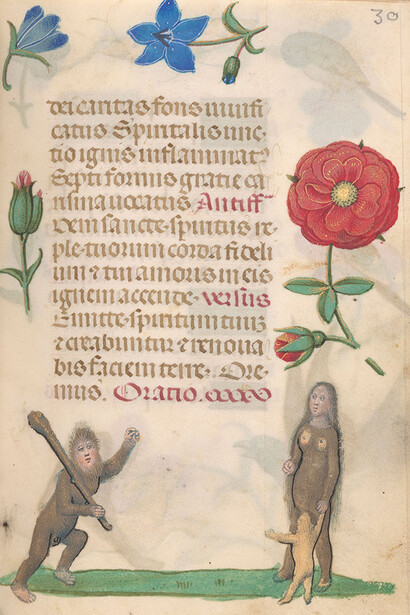 30
dei caritas fons uiuifi
catus Spiritalis unc
tio ignis inflammat᷒
Septi formus gratie ca
nsina uocatus Antiff
Veni sancte spiritus re
ple tuorum corda fideli
um ⁊ tui amoris in eis
ignem accende · versus
Emitte spiritum tuum
⁊ creabuntur ⁊ renoua
bis faciem terre · Ore
mus. Oratio